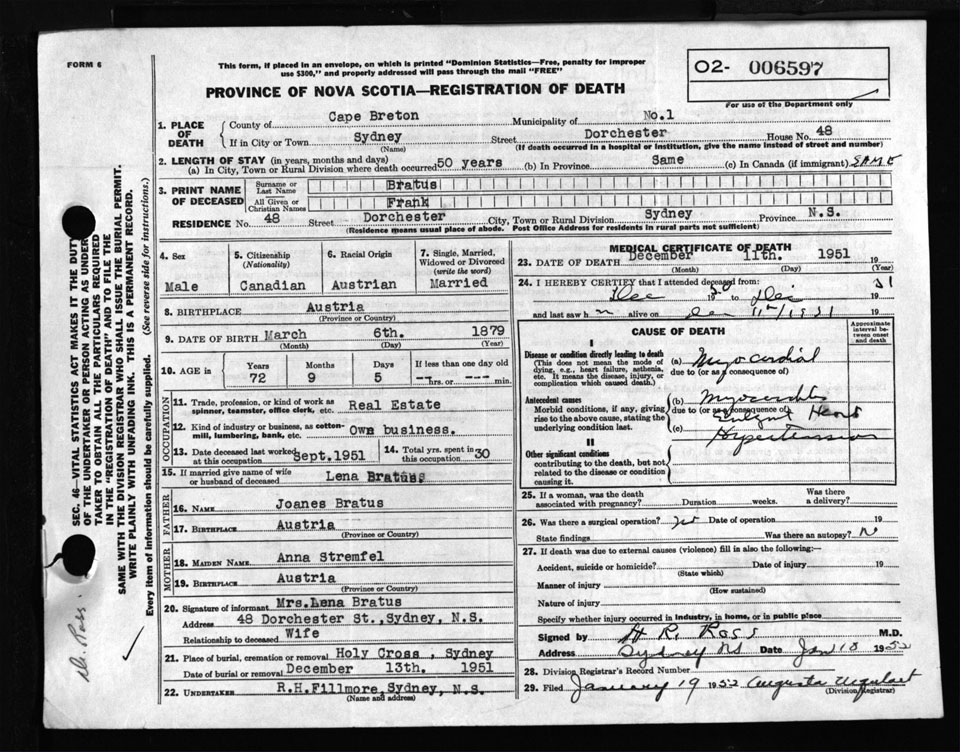 FORM 6
This form, if placed in an envelope, on which is printed "Dominion Statistics—Free, penalty for improper
use $300," and properly addressed will pass through the mail "FREE"
O2- 006597
For use of the Department only
PROVINCE OF NOVA SCOTIA—REGISTRATION OF DEATH
1. PLACE OF DEATH
County of Cape Breton Municipality of No.1
If in City or Town Sydney Street Dorchester House No. 48
(Name) (If death occurred in a hospital or institution, give the name instead of street and number)
2. LENGTH OF STAY (in years, months and days)
(a) In City, Town or Rural Division where death occurred 50 years (b) In Province Same (c) In Canada (if immigrant) SAME
3. PRINT NAME OF DECEASED
Surname or Last Name Bratus
All Given or Christian Names Frank
RESIDENCE No. 48 Street Dorchester City, Town or Rural Division Sydney Province N.S.
(Residence means usual place of abode. Post Office Address for residents in rural parts not sufficient)
4. Sex Male
5. Citizenship (Nationality) Canadian
6. Racial Origin Austrian
7. Single, Married, Widowed or Divorced (write the word) Married
8. BIRTHPLACE Austria
(Province or Country)
9. DATE OF BIRTH March 6th. 1879
(Month) (Day) (Year)
10. AGE in Years 72 Months 9 Days 5 If less than one day old --- hrs. or --- min.
OCCUPATION
11. Trade, profession, or kind of work as spinner, teamster, office clerk, etc. Real Estate
12. Kind of industry or business, as cotton-mill, lumbering, bank, etc. Own business.
13. Date deceased last worked at this occupation Sept.1951
14. Total yrs. spent in this occupation 30
15. If married give name of wife or husband of deceased Lena Bratus.
FATHER
16. NAME Joanes Bratus
17. BIRTHPLACE Austria
(Province or Country)
MOTHER
18. MAIDEN NAME Anna Stremfel
19. BIRTHPLACE Austria
(Province or Country)
20. Signature of informant Mrs.Lena Bratus
Address 48 Dorchester St.,Sydney, N.S.
Relationship to deceased Wife
21. Place of burial, cremation or removal Holy Cross , Sydney
Date of burial or removal December 13th. 1951
22. UNDERTAKER R.H.Fillmore, Sydney, N.S.
(Name and Address)
MEDICAL CERTIFICATE OF DEATH
23. DATE OF DEATH December 11th. 1951 19
(Month) (Day) (Year)
24. I HEREBY CERTIFY that I attended deceased from:
Dec 19 to Dec 19 51
and last saw h m alive on Dec 11th/1951 19
CAUSE OF DEATH
Approximate interval between onset and death
I
Disease or condition directly leading to death
(This does not mean the mode of dying, e.g., heart failure, asthenia, etc. It means the disease, injury, or complication which caused death.)
(a) Myocardial
due to (or as a consequence of)
Antecedent causes
Morbid conditions, if any, giving rise to the above cause, stating the underlying condition last.
(b) Myocarditis
due to (or as a consequence of)
Heart
(c) Hypertension
II
Other significant conditions
contributing to the death, but not related to the disease or condition causing it.
25. If a woman, was the death associated with pregnancy? Duration weeks. Was there a delivery?
26. Was there a surgical operation? Date of operation 19
State findings Was there an autopsy? N
27. If death was due to external causes (violence) fill in also the following:—
Accident, suicide or homicide? Date of injury 19
(State which)
Manner of injury
(How sustained)
Nature of injury
Specify whether injury occurred in industry, in home, or in public place
Signed by H R. Ross M.D.
Address Sydney NS Date Jan 18 1952
28. Division Registrar's Record Number
29. Filed January 19 1952 Augusta Urquhart
(Division Registrar)
SEC. 46—VITAL STATISTICS ACT MAKES IT THE DUTY
OF THE UNDERTAKER OR PERSON ACTING AS UNDER-
TAKER TO OBTAIN ALL THE PARTICULARS REQUIRED
IN THE "REGISTRATION OF DEATH" AND TO FILE THE
SAME WITH THE DIVISION REGISTRAR WHO SHALL ISSUE THE BURIAL PERMIT.
WRITE PLAINLY WITH UNFADING INK. THIS IS A PERMANENT RECORD.
Every item of information should be carefully supplied. (See reverse side for instructions.)
Dr. Ross.